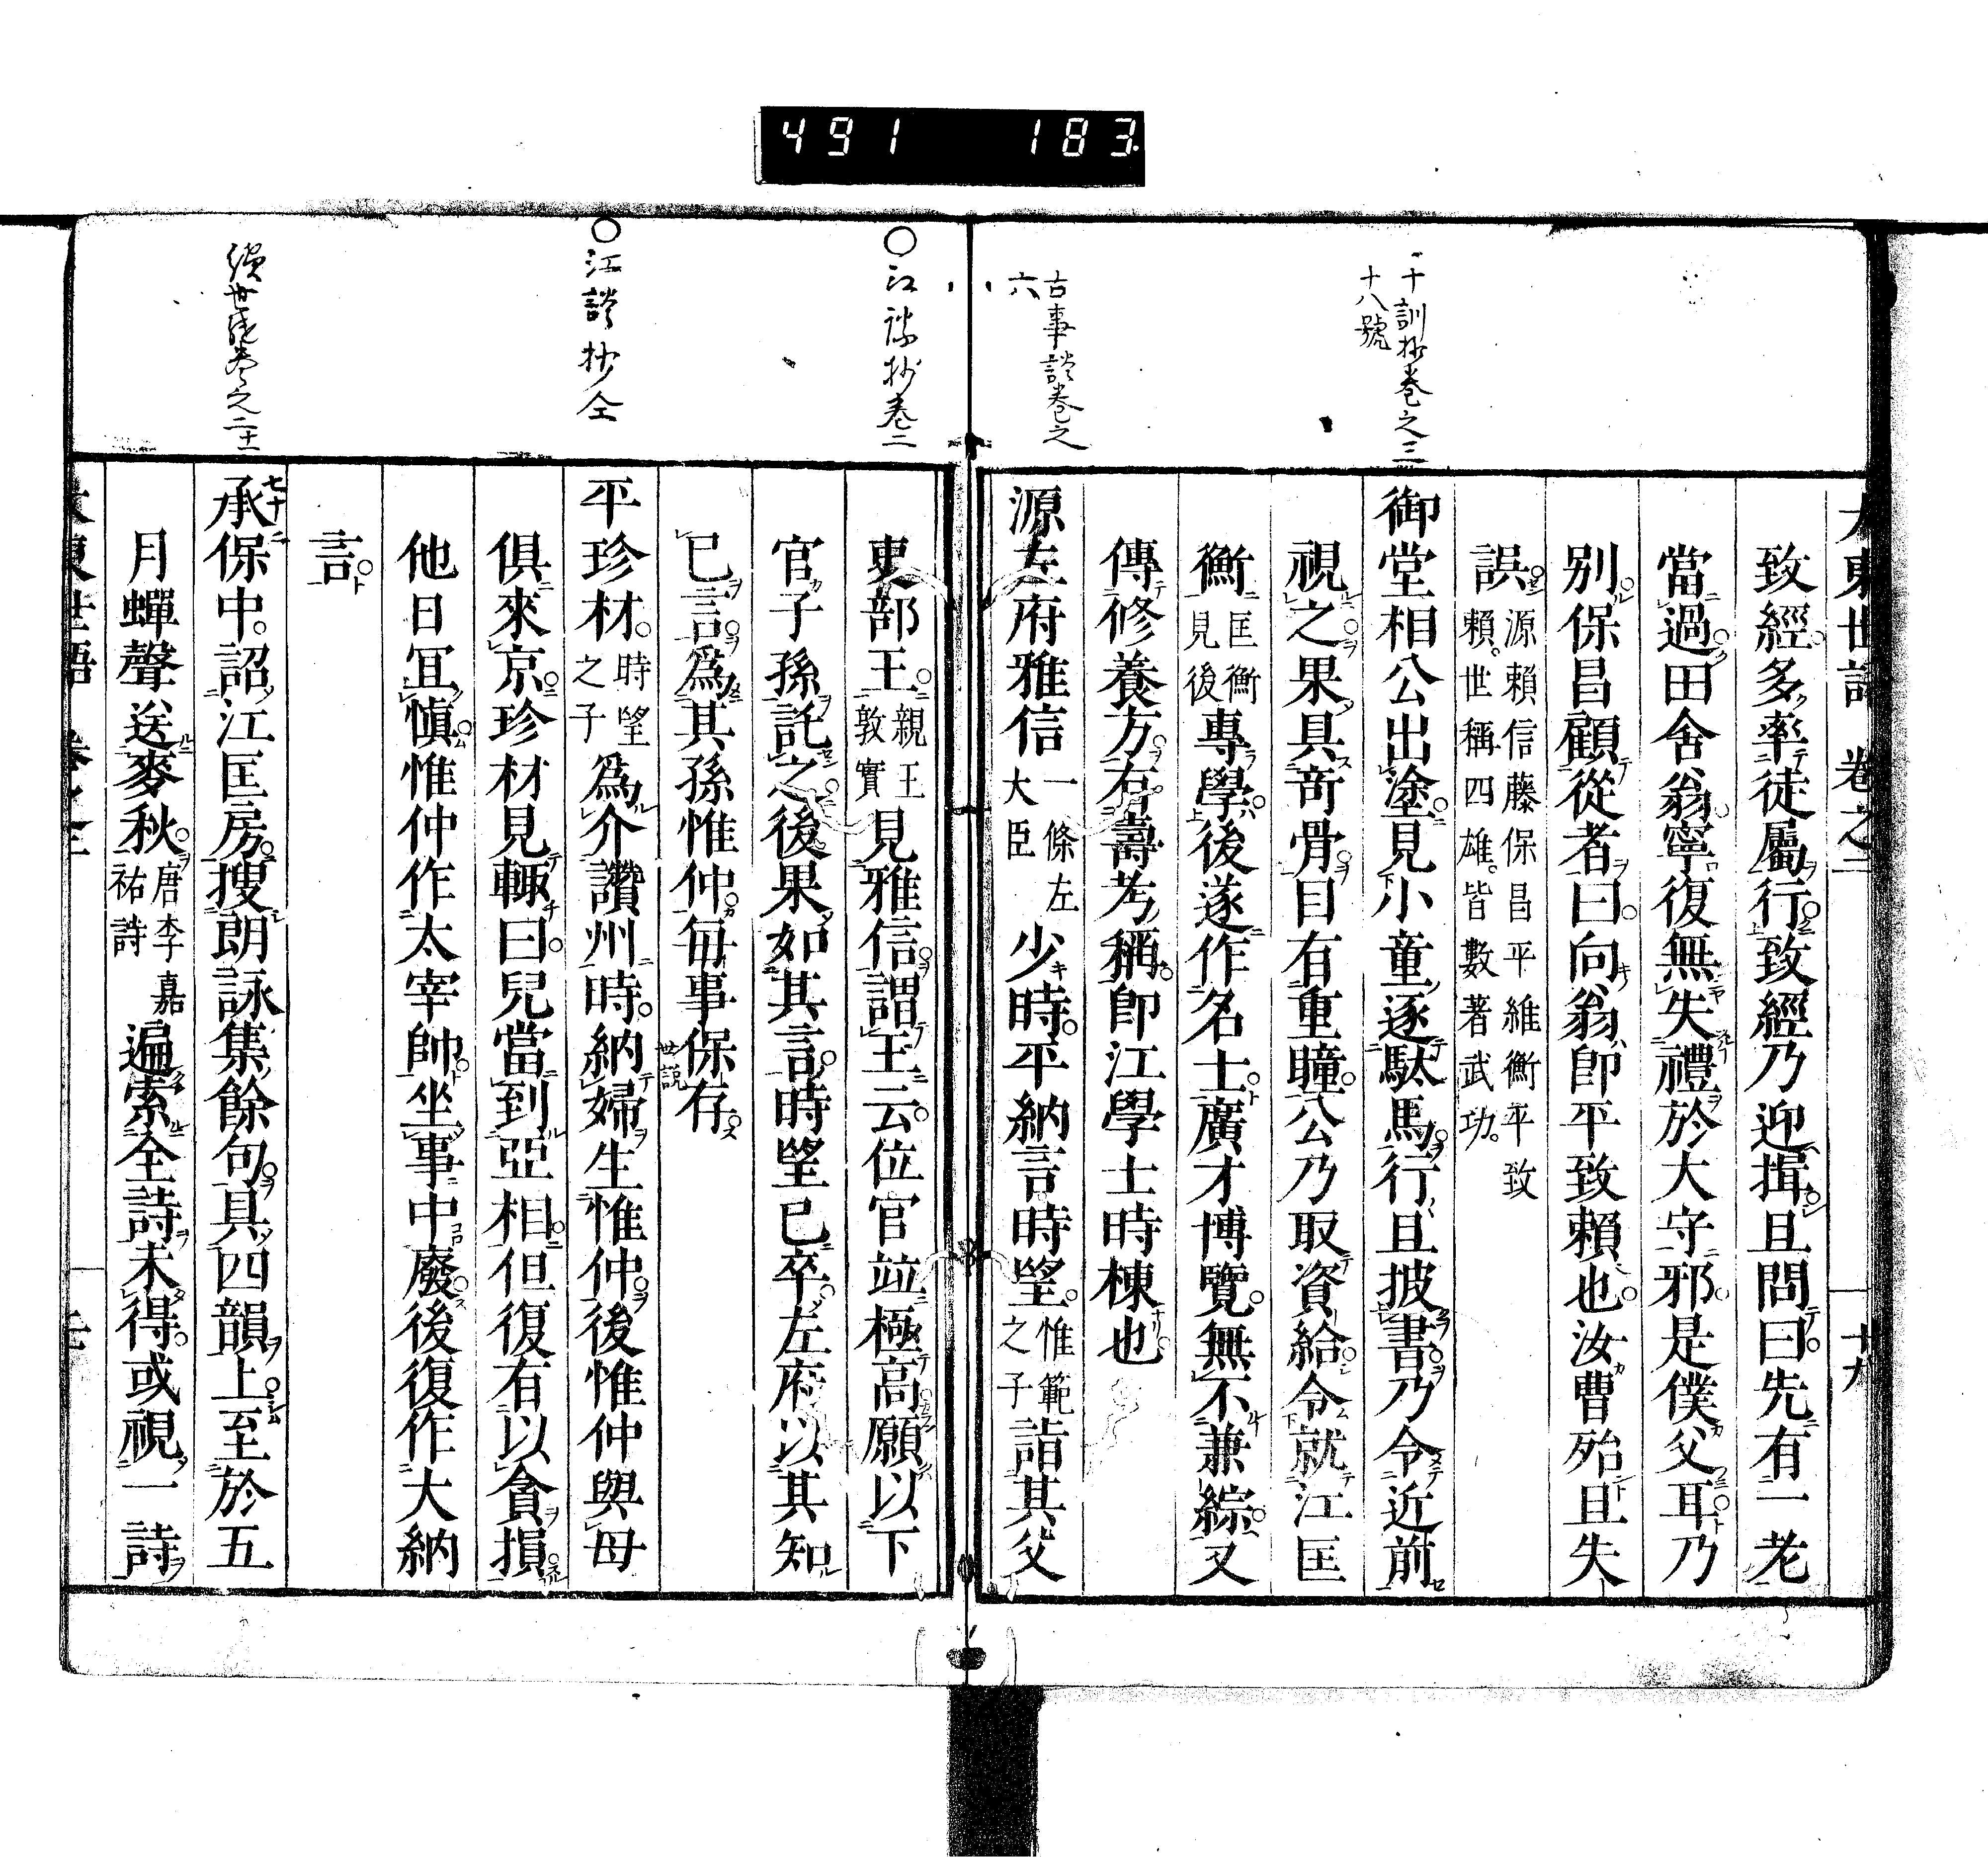 491 183
十訓抄卷之三
十八號
古事談卷之
六
大東世語 卷之二 十九
致經多率徒屬行致經乃迎揖且問曰先有一老
當過田舍翁寧復無失禮於大守邪是僕父耳乃
別保昌顧從者曰向翁卽平致賴也汝曹殆且失
誤源賴信藤保昌平維衡平致賴世稱四雄皆數著武功
御堂相公出塗見小童逐駄馬行且披書乃令近前
視之果具奇骨目有重瞳公乃取資給令就江匡
衡匡衡見後專學後遂作名士廣才博覽無不兼綜又
傳修養方右壽考稱卽江學士時棟也
源左府雅信一條左大臣少時平納言時望惟範之子詣其父
○江談抄卷二
○江談抄全
續世繼卷之二十一
吏部王親王敦實見雅信謂王云位官竝極高願以下
官子孫託之後果如其言時望已卒左府以其知
已言爲其孫惟仲每事保存
世説
平珍材時望之子爲介讚州時納婦生惟仲後惟仲與母
俱來京珍材見輒曰兒當到亞相但復有以貪損
他日冝愼惟仲作太宰帥坐事中廢後復作大納
言
承保中詔江匡房搜朗詠集餘句具四韻上至於五
七十二
月蟬聲送麥秋唐李嘉祐詩遍索全詩未得或視一詩
大東世語 卷之二 二十